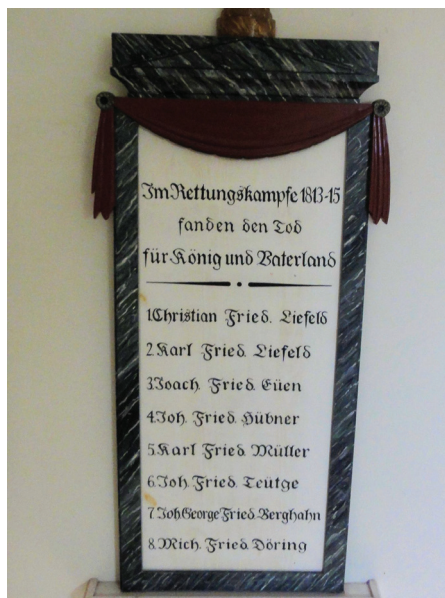 Im Rettungskampfe 1813-15
fanden den Tod
für König und Vaterland
1. Christian Fried. Liefeld
2. Karl Fried. Liefeld
3. Joach. Fried. Eüen
4. Joh. Fried. Hübner
5. Karl Fried. Müller
6. Joh. Fried. Teütge
7. Joh. George Fried. Berghahn
8. Mich. Fried. Döring